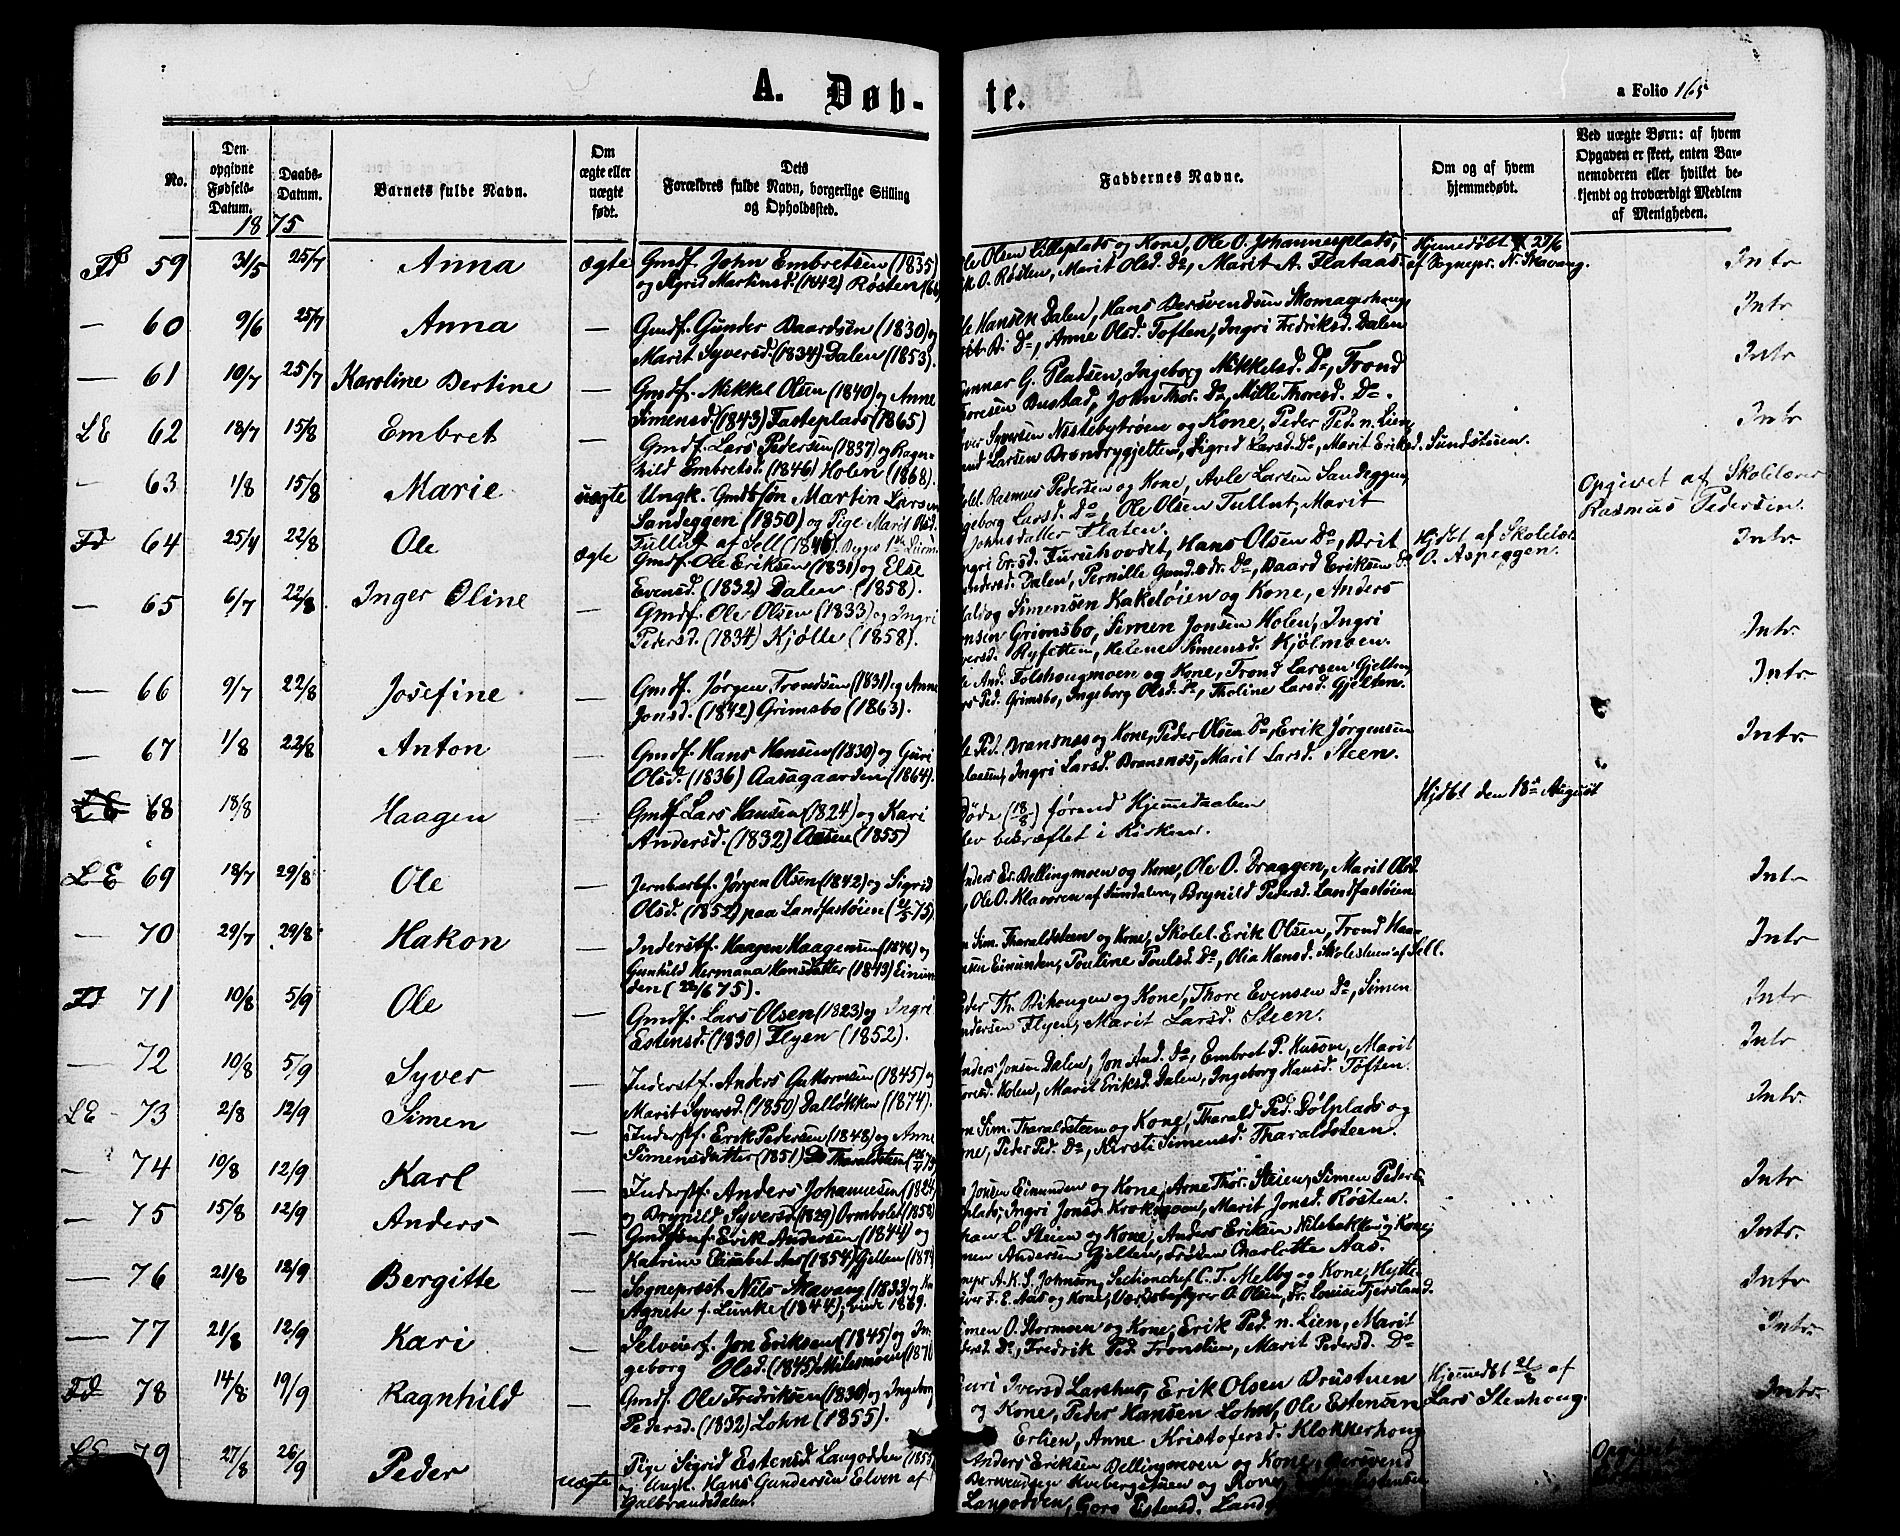 A. Døb-
te.
a Folio 165
No.
Den opgivne Fødsels-Datum.
Daabs-Datum.
Barnets fulde Navn.
Om ægte eller uægte født.
Dets Forældres fulde Navn, borgerlige Stilling og Opholdssted.
Faddernes Navne.
Om og af hvem hjemmedøbt.
Ved uægte Børn: af hvem Opgaven er skeet, enten Barnemoderen eller hvilket bekjendt og troværdigt Medlem af Menigheden.
1875
59 31/5 25/7 Anna ægte Gmdf. John Embretsen (1835)
og Sigrid Martinsd. (1842) Røsten
Olsen Lilleplads og Kone, Ole O. Johannesplads,
O. Røsten, Marit Olsd. Do, Marit A. Flataas.
Hjemmedøbt 27/6
af Sognepr. N. Skavang.
Intr
— 60 9/6 25/7 Anna — Gmdf. Gunder Baardsen (1830) og
Marit Syversd. (1834) Dalen (1853).
Hansen Dalen, Hans Bersvendsen Skomagerhaug
Do, Anne Olsd. Toften, Ingri Fredriksd. Dalen
Intr
— 61 10/7 25/7 Karoline Bertine — Gmdf. Mikkel Olsen (1840) og Anne
Simensd. (1843) Tasteplads (1865)
Gunnar G. Pladsen, Ingeborg Mikkelsd. Do, Trond
Thoresen Bustad, John Thor. Do, Mille Thoresd. Do.
Intr
LE 62 18/7 15/8 Embret — Gmdf. Lars Pedersen (1837) og Ragn-
hild Embretsd. (1846) Holen (1868).
Syversen Nestebytrøen og Kone, Peder Ped. n. Lien,
Larsen Brondrygjelten, Sigrid Larsd. Do, Marit Eriksd. Sundstuen.
Intr
— 63 1/8 15/8 Marie uægte Ungk. Gmdssøn Martin Larsen
Sandeggen (1850) og Pige Marit Olsd.
Tullut af Sell (1846).
Rasmus Pedersen og Kone, Avle Larsen Sandeggen,
Ingeborg Larsd. Do, Ole Olsen Tullut, Marit
Johnsdatter Flaten.
Opgivet af Skolelærer
Rasmus Pedersen.
64 25/4 22/8 Ole ægte Gmdf. Ole Eriksen (1831) og Else
Evensd. (1832) Dalen (1858).
Ingri Er.sd. Furuhovdet, Hans Olsen Do, Brit
Dalen, Pernille Do, Baard Eriksen Do
Hjdbt af Skolelær.
O. Aspeggen.
Intr
— 65 6/7 22/8 Inger Oline — Gmdf. Ole Olsen (1833) og Ingri
Pedersd. (1834) Kjølle (1858).
Simensen Kakeløien og Kone, Anders
Grimsbo, Simen Jonsen Holen, Ingri
Ryfetten, Helene Simensd. Kjølmoen.
Intr.
— 66 9/7 22/8 Josefine — Gmdf. Jørgen Trondsen (1831) og Anne
Jonsd. (1842) Grimsbo (1863).
And. Folshougmoen og Kone, Trond Larsen Gjelten,
Ped. Grimsbo, Ingeborg Olsd. Do, Tholine Larsd. Gjelten.
Intr
— 67 1/8 22/8 Anton — Gmdf. Hans Hansen (1830) og Guri
Olsd. (1836) Aasagaarden (1864).
Ped. Bransnæs og Kone, Peder Olsen Do, Erik Jørgensen
Ingri Larsd. Bransnæs, Marit Larsd. Steen.
Intr.
68 18/8 Haagen — Gmdf. Lars Hansen (1824) og Kari
Andersd. (1832) Aasen (1855)
Døde (18/8) førend Hjemmedaaben
blev bekræftet i Kirken.
Hjdbt den 18de August
LE 69 18/7 29/8 Ole — Jernbarbf. Jørgen Olsen (1842) og Sigrid
Olsd. (1852) paa Landfastøien (21/5 75).
Anders Er. Bellingmoen og Kone, Ole O. Braggen, Marit Olsd.
Ole O. Klavøren af Sundalen, Brynild Pedersd. Landfastøien
Intr
— 70 29/7 29/8 Hakon — Inderstf. Haagen Haagensen (1846) og
Gunhild Hermana Hansdatter (1849) Eimun-
den (22/6 75).
Sim. Tharaldsteen og Kone, Skolel. Erik Olsen, Trond Haa-
gensen Eimunden, Pouline Poulsd. Do, Olia Hansd. Skolestuen af Sell.
Intr
71 10/8 5/9 Ole — Gmdf. Lars Olsen (1823) og Ingri
Estensd. (1830) Flyen (1852).
Peder Th. Bihaugen og Kone, Thore Evensen Do, Simen
Andersen Flyen, Marit Larsd. Steen.
Intr
— 72 10/8 5/9 Syver — Inderstf. Anders Guttormsen (1845) og
Marit Syversd. (1850) Dalløkken (1874).
Anders Jonsen Dalen, Jon And. Do, Embret P. Husove, Marit
Holen, Marit Eriksd. Dalen, Ingeborg Hansd. Toften.
Intr
LE 73 2/8 12/9 Simen — Inderstf. Erik Pedersen (1848) og Anne
Simensdatter (1851) Tharaldsteen
Sim. Tharaldsteen og Kone, Tharald Ped. Dølplads og
Kone, Peder Ped. Do, Kirsti Simensd. Tharaldsteen.
Intr.
— 74 10/8 12/9 Karl — Inderstf. Anders Johannesen
og Brynild Syversd. (1829) Ormbolet (1858)
Jonsen Eimunden og Kone, Arne Thor. Steien, Simen Peders.
Ingri Jonsd. Krokmoen, Marit Jonsd. Røsten.
Intr
— 75 15/8 12/9 Anders — Erik Andersen (1844) og
Katrine Elisabet Aas (1854) Gjelten
L. Steien og Kone, Anders Eriksen Nilsbakken og Kone,
Andersen Gjelten, Frøken Charlotte Aas.
Intr.
— 76 21/8 12/9 Bergitte — Sogneprest Nils Skavang (1833) og
Agnete f. Lunke (1844), viede 1869.
A. K. S. Johnson, Sectionschef C. T. Melby og Kone, Hytte-
F. E. Aas og Kone, Værksbestyrer O. Olsen, Fr. Louise Fjersland.
Intr
— 77 21/8 12/9 Kari — Selveierf. Jon Eriksen (1845) og In-
geborg Olsd. (1845) Milesmoen
Simen O. Stormoen og Kone, Erik Ped. n. Lien, Marit
Do, Fredrik Ped. Tronslien, Marit Pedersd. Do
Intr.
78 14/8 19/9 Ragnhild — Gmdf. Ole Fredriksen (1830) og Ingeborg
Pedersd. (1832) Lohn (1855).
Iversd. Larshus, Erik Olsen Brustuen
og Kone, Peder Hansen Lohn, Ole Estensen
Erlien, Anne Kristofersd. Klokkerhoug
Hjemmedbt 21/8 af
Lars Stenhoug.
Intr.
79 27/8 26/9 Peder uægte Pige Sigrid Estensd. Langodden
og Ungk. Hans Gundersen Elven af
Galbrandsdalen.
Anders Eriksen Bellingmoen og Kone,
Kvebergsøen og Kone, Estensen
Langodden, Goro Estensd.
Opgivet